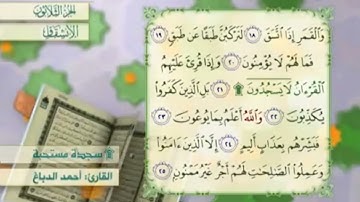 الجزء الثلاثون
الانشقاق
وَٱلْقَمَرِ إِذَا ٱتَّسَقَ ١٨ لَتَرْكَبُنَّ طَبَقًا عَن طَبَقٍ ١٩
فَمَا لَهُمْ لَا يُؤْمِنُونَ ٢٠ وَإِذَا قُرِئَ عَلَيْهِمُ
ٱلْقُرْءَانُ لَا يَسْجُدُونَ ۩ ٢١ بَلِ ٱلَّذِينَ كَفَرُوا۟
يُكَذِّبُونَ ٢٢ وَٱللَّهُ أَعْلَمُ بِمَا يُوعُونَ ٢٣
فَبَشِّرْهُم بِعَذَابٍ أَلِيمٍ ٢٤ إِلَّا ٱلَّذِينَ ءَامَنُوا۟
وَعَمِلُوا۟ ٱلصَّٰلِحَٰتِ لَهُمْ أَجْرٌ غَيْرُ مَمْنُونٍۭ ٢٥
۩ سجدة مستحبة
القارئ: أحمد الدباغ